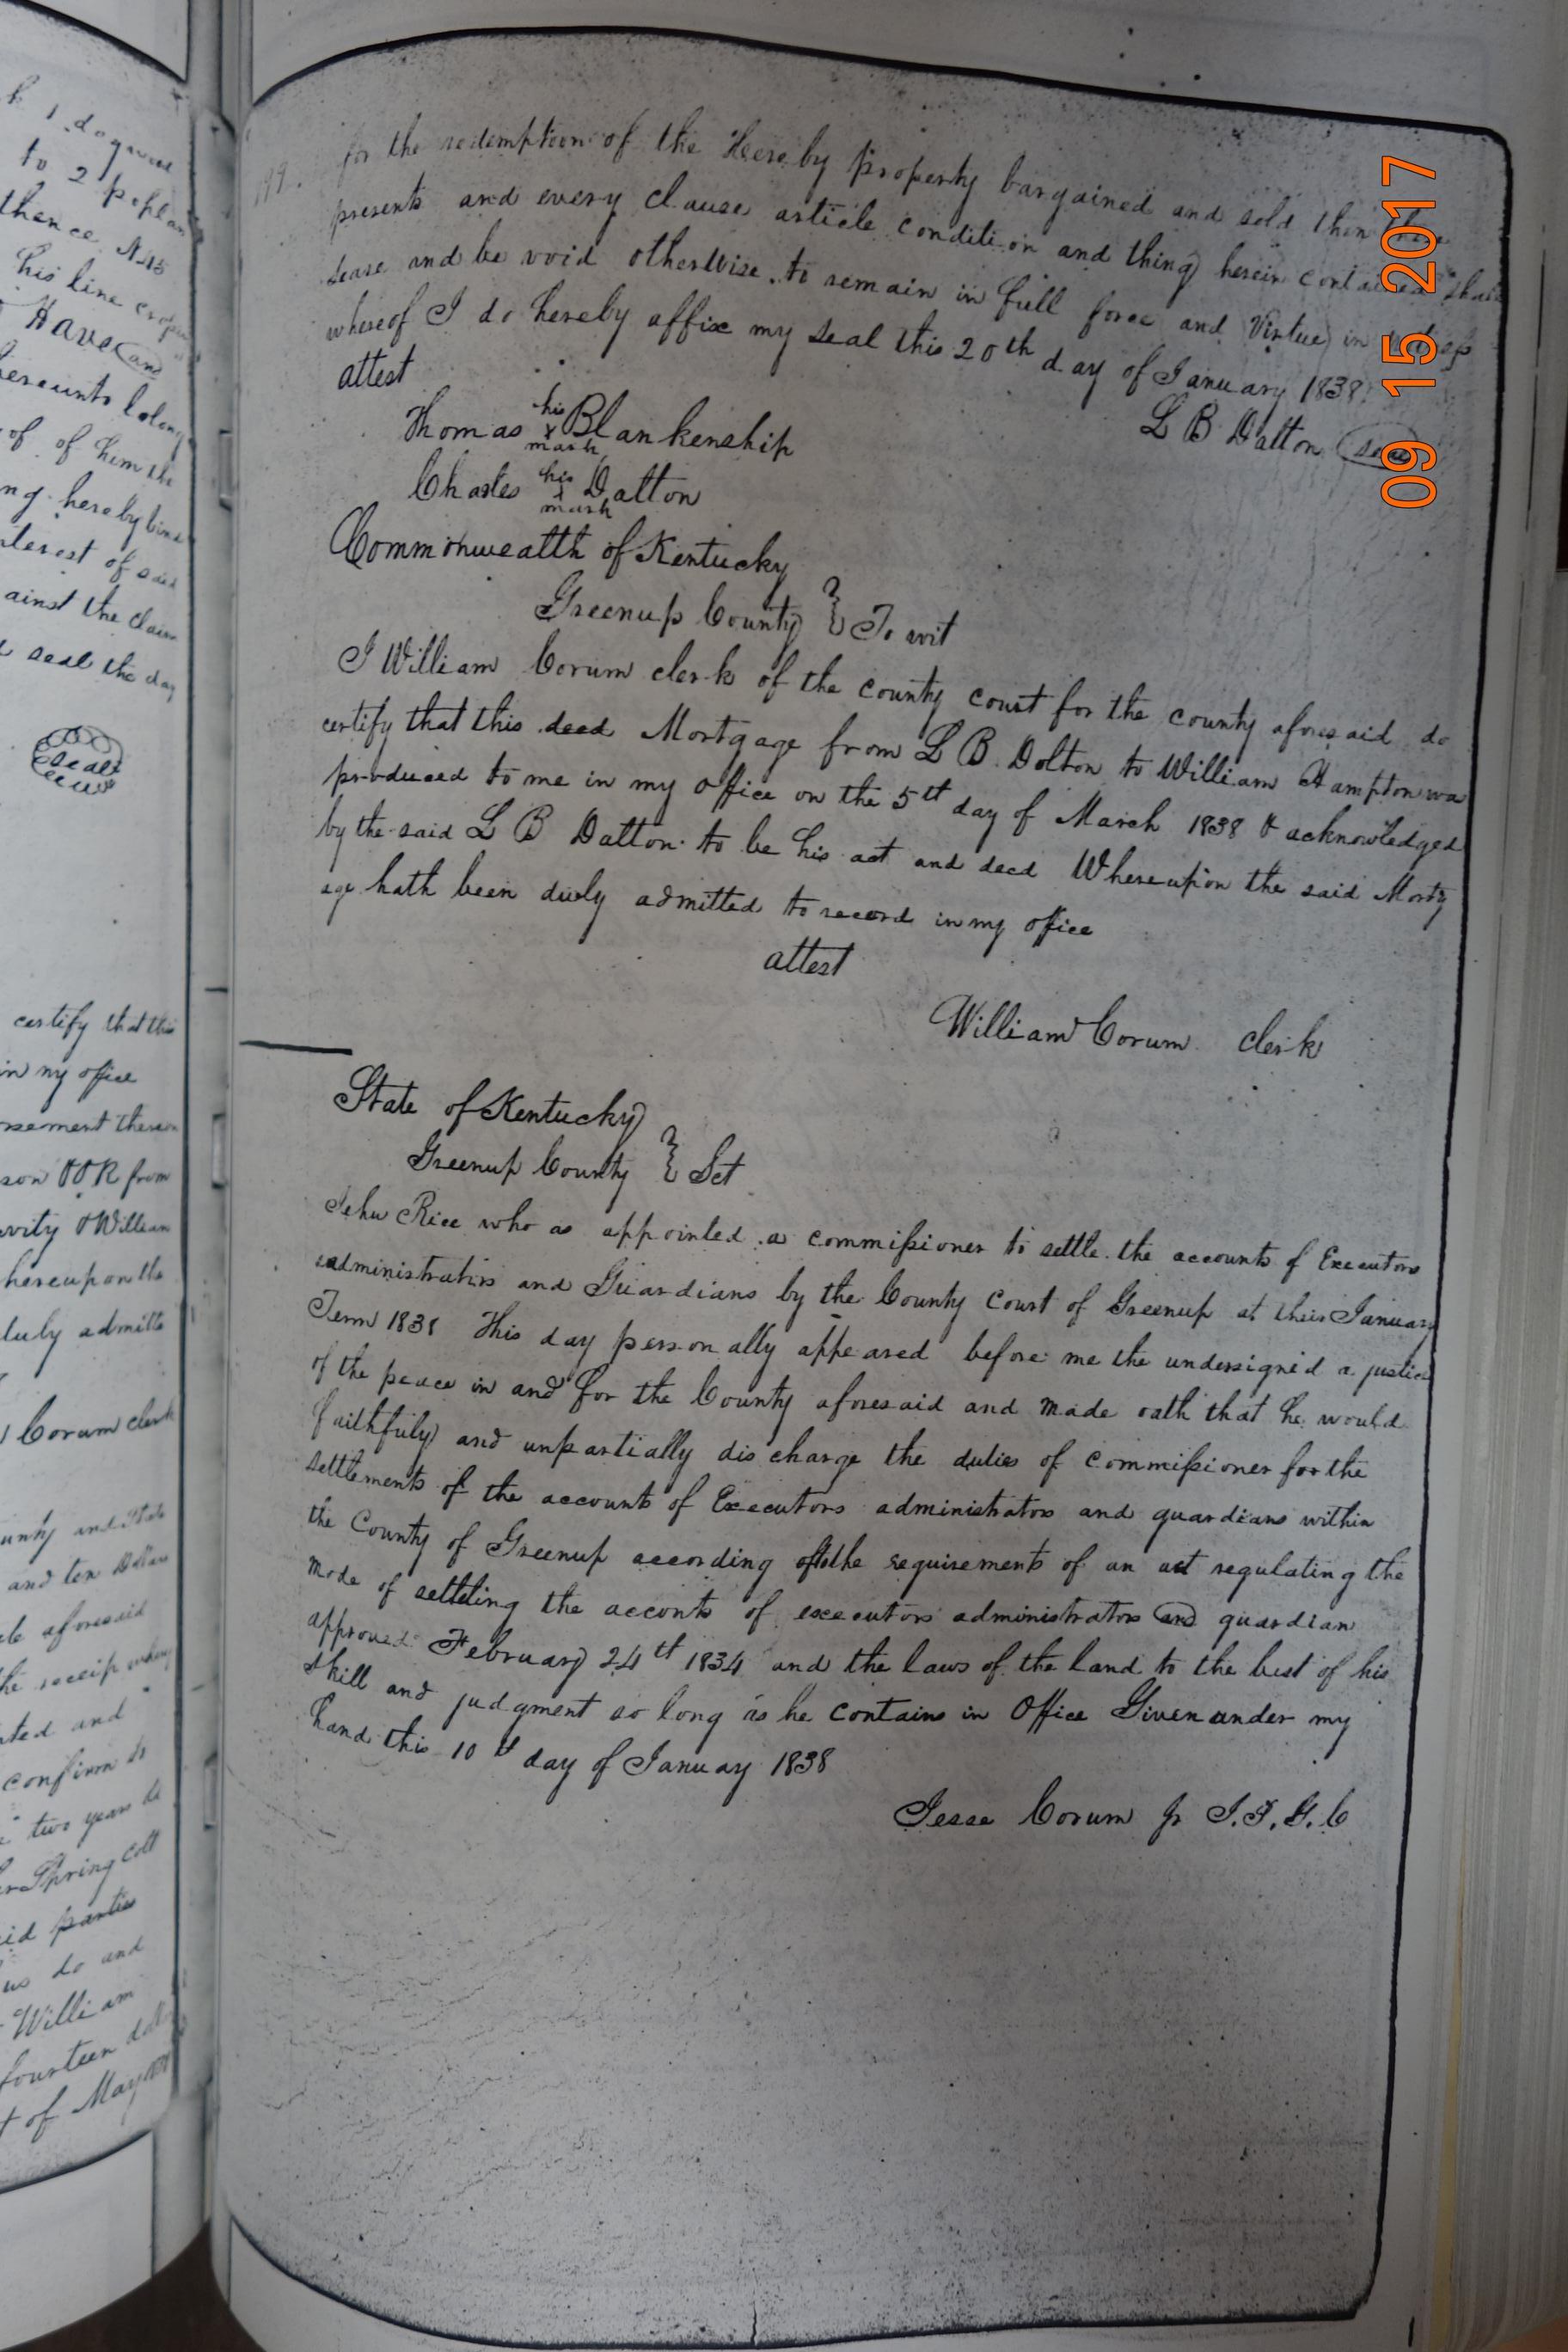 for the redemption of the Hereby property bargained and sold then these
presents and every clause article condition and thing herein contained shall
sease and be void otherwise to remain in full force and Virtue in
whereof I do hereby affix my seal this 20th day of January 1838
attest
L B Dalton seal
Thomas his x mark Blankenship
Charles his x mark Dalton
Commonwealth of Kentucky
Greenup County } To wit
I William Corum clerk of the county court for the county aforesaid do
certify that this deed Mortgage from L B Dolton to William Hampton wa
produced to me in my office on the 5th day of March 1838 & acknowledged
by the said L B Dalton to be his act and deed Whereupon the said Mortg
age hath been duely admitted to record in my office
attest
William Corum clerk
State of Kentucky
Greenup County } Sct
Jehu Rice who as appointed a commissioner to settle the accounts of Executors
administrators and Guardians by the County Court of Greenup at their January
Term 1838 This day personally appeared before me the undersigned a justice
of the peace in and for the County aforesaid and made oath that he would
faithfuly and unpartially discharge the duties of commissioner for the
settlements of the accounts of Executors administrators and guardians within
the County of Greenup according to the requirements of an act regulating the
mode of settleing the acconts of executors administrators and guardian
approved February 24th 1834 and the laws of the land to the best of his
skill and judgment so long as he contains in Office Given under my
hand this 10th day of January 1838
Jesse Corum Jr J.P.G.C
09 15 2017
to 2 poplar
thence N45
his line
Have and
of of him the
hereby bind
interest of said
ainst the claim
seal the day
Seal
certify that this
in my office
from
& William
hereupon the
duly admitte
Corum clerk
and ten Dollars
aforesaid
and
confirm
two years
Spring colt
parties
us do and
William
fourteen
of May